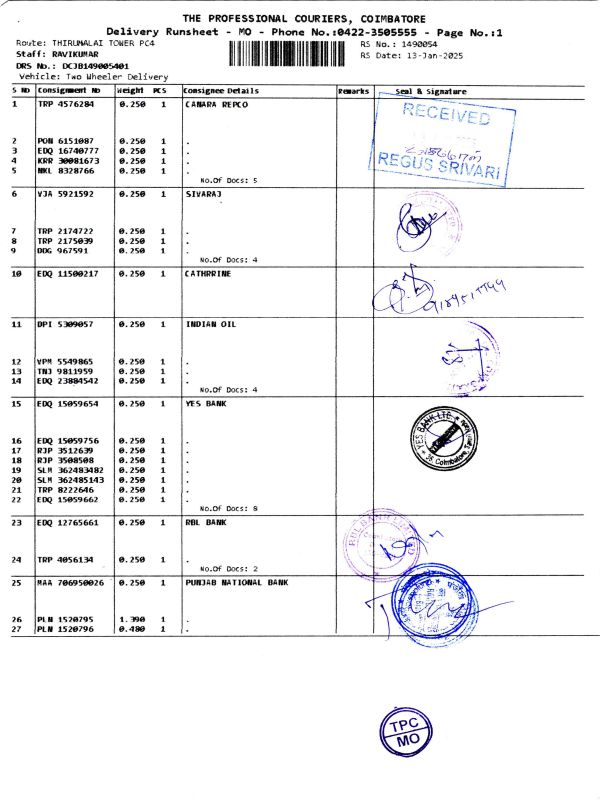 THE PROFESSIONAL COURIERS, COIMBATORE
Delivery Runsheet - MO - Phone No.:0422-3505555 - Page No.:1
Route: THIRUMALAI TOWER PC4 RS No.: 1490054
Staff: RAVIKUMAR RS Date: 13-Jan-2025
DRS No.: DCJB149005401
Vehicle: Two Wheeler Delivery
S No Consignment No Weight PCS Consignee Details Remarks Seal & Signature
1 TRP 4576284 0.250 1 CANARA REPCO
RECEIVED
2 PON 6151087 0.250 1 .
3 EDQ 16740777 0.250 1 .
4 KRR 30081673 0.250 1 .
REGUS SRIVARI
5 NKL 8328766 0.250 1 .
No.Of Docs: 5
6 VJA 5921592 0.250 1 SIVARAJ
7 TRP 2174722 0.250 1 .
8 TRP 2175039 0.250 1 .
9 DDG 967591 0.250 1 .
No.Of Docs: 4
10 EDQ 11500217 0.250 1 CATHRRINE
11 DPI 5309057 0.250 1 INDIAN OIL
12 VPM 5549865 0.250 1 .
13 TNJ 9811959 0.250 1 .
14 EDQ 23884542 0.250 1 .
No.Of Docs: 4
15 EDQ 15059654 0.250 1 YES BANK
YES BANK LTD.
Coimbatore, Tamil
16 EDQ 15059756 0.250 1 .
17 RJP 3512639 0.250 1 .
18 RJP 3508508 0.250 1 .
19 SLM 362483482 0.250 1 .
20 SLM 362485143 0.250 1 .
21 TRP 8222646 0.250 1 .
22 EDQ 15059662 0.250 1 .
No.Of Docs: 8
23 EDQ 12765661 0.250 1 RBL BANK
RBL BANK LIMITED
24 TRP 4056134 0.250 1 .
No.Of Docs: 2
25 MAA 706950026 0.250 1 PUNJAB NATIONAL BANK
26 PLN 1520795 1.390 1 .
27 PLN 1520796 0.480 1 .
TPC
MO